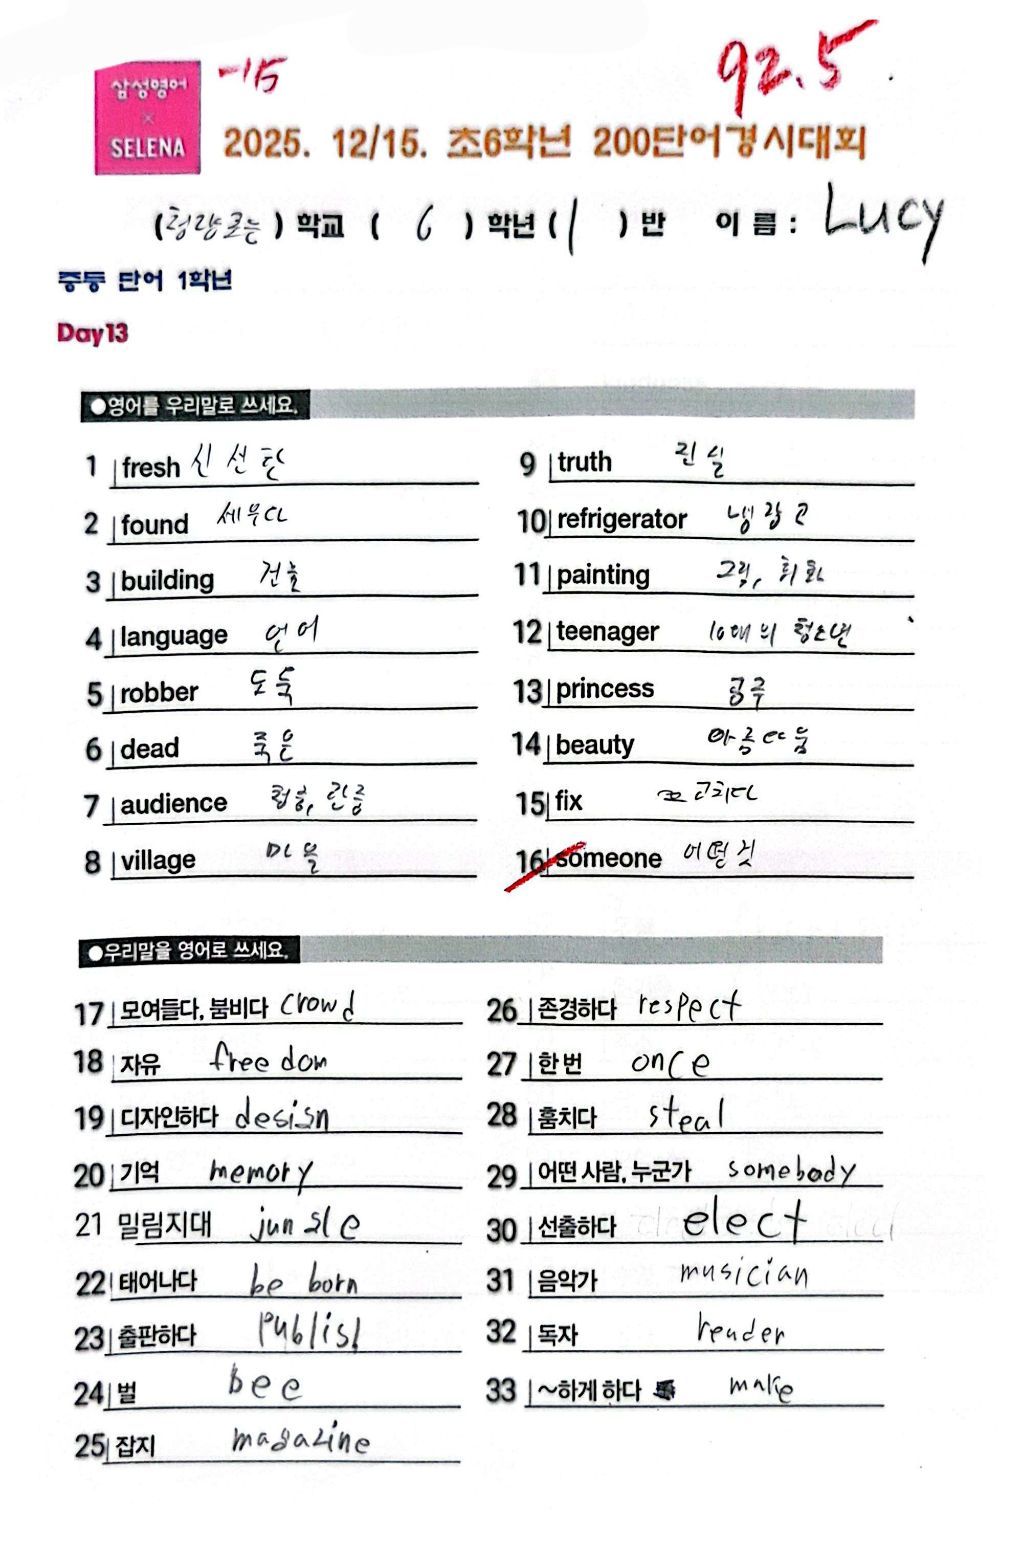 -15
92.5
삼성영어
×
SELENA
2025. 12/15. 초6학년 200단어경시대회
(청량초등) 학교 ( 6 ) 학년 ( 1 ) 반 이 름 : Lucy
중등 단어 1학년
Day13
●영어를 우리말로 쓰세요.
1 fresh 신선한
2 found 세우다
3 building 건눌
4 language 언어
5 robber 도둑
6 dead 죽은
7 audience 청중, 관중
8 village 마을
9 truth 진실
10 refrigerator 냉장고
11 painting 그림, 회화
12 teenager 10대의 청소년
13 princess 공주
14 beauty 아름다움
15 fix 고치다
16 someone 어떤것
●우리말을 영어로 쓰세요.
17 모여들다, 붐비다 crowd
18 자유 freedom
19 디자인하다 design
20 기억 memory
21 밀림지대 jungle
22 태어나다 be born
23 출판하다 publish
24 벌 bee
25 잡지 magazine
26 존경하다 respect
27 한번 once
28 훔치다 steal
29 어떤 사람, 누군가 somebody
30 선출하다 elect
31 음악가 musician
32 독자 reader
33 ~하게 하다 make